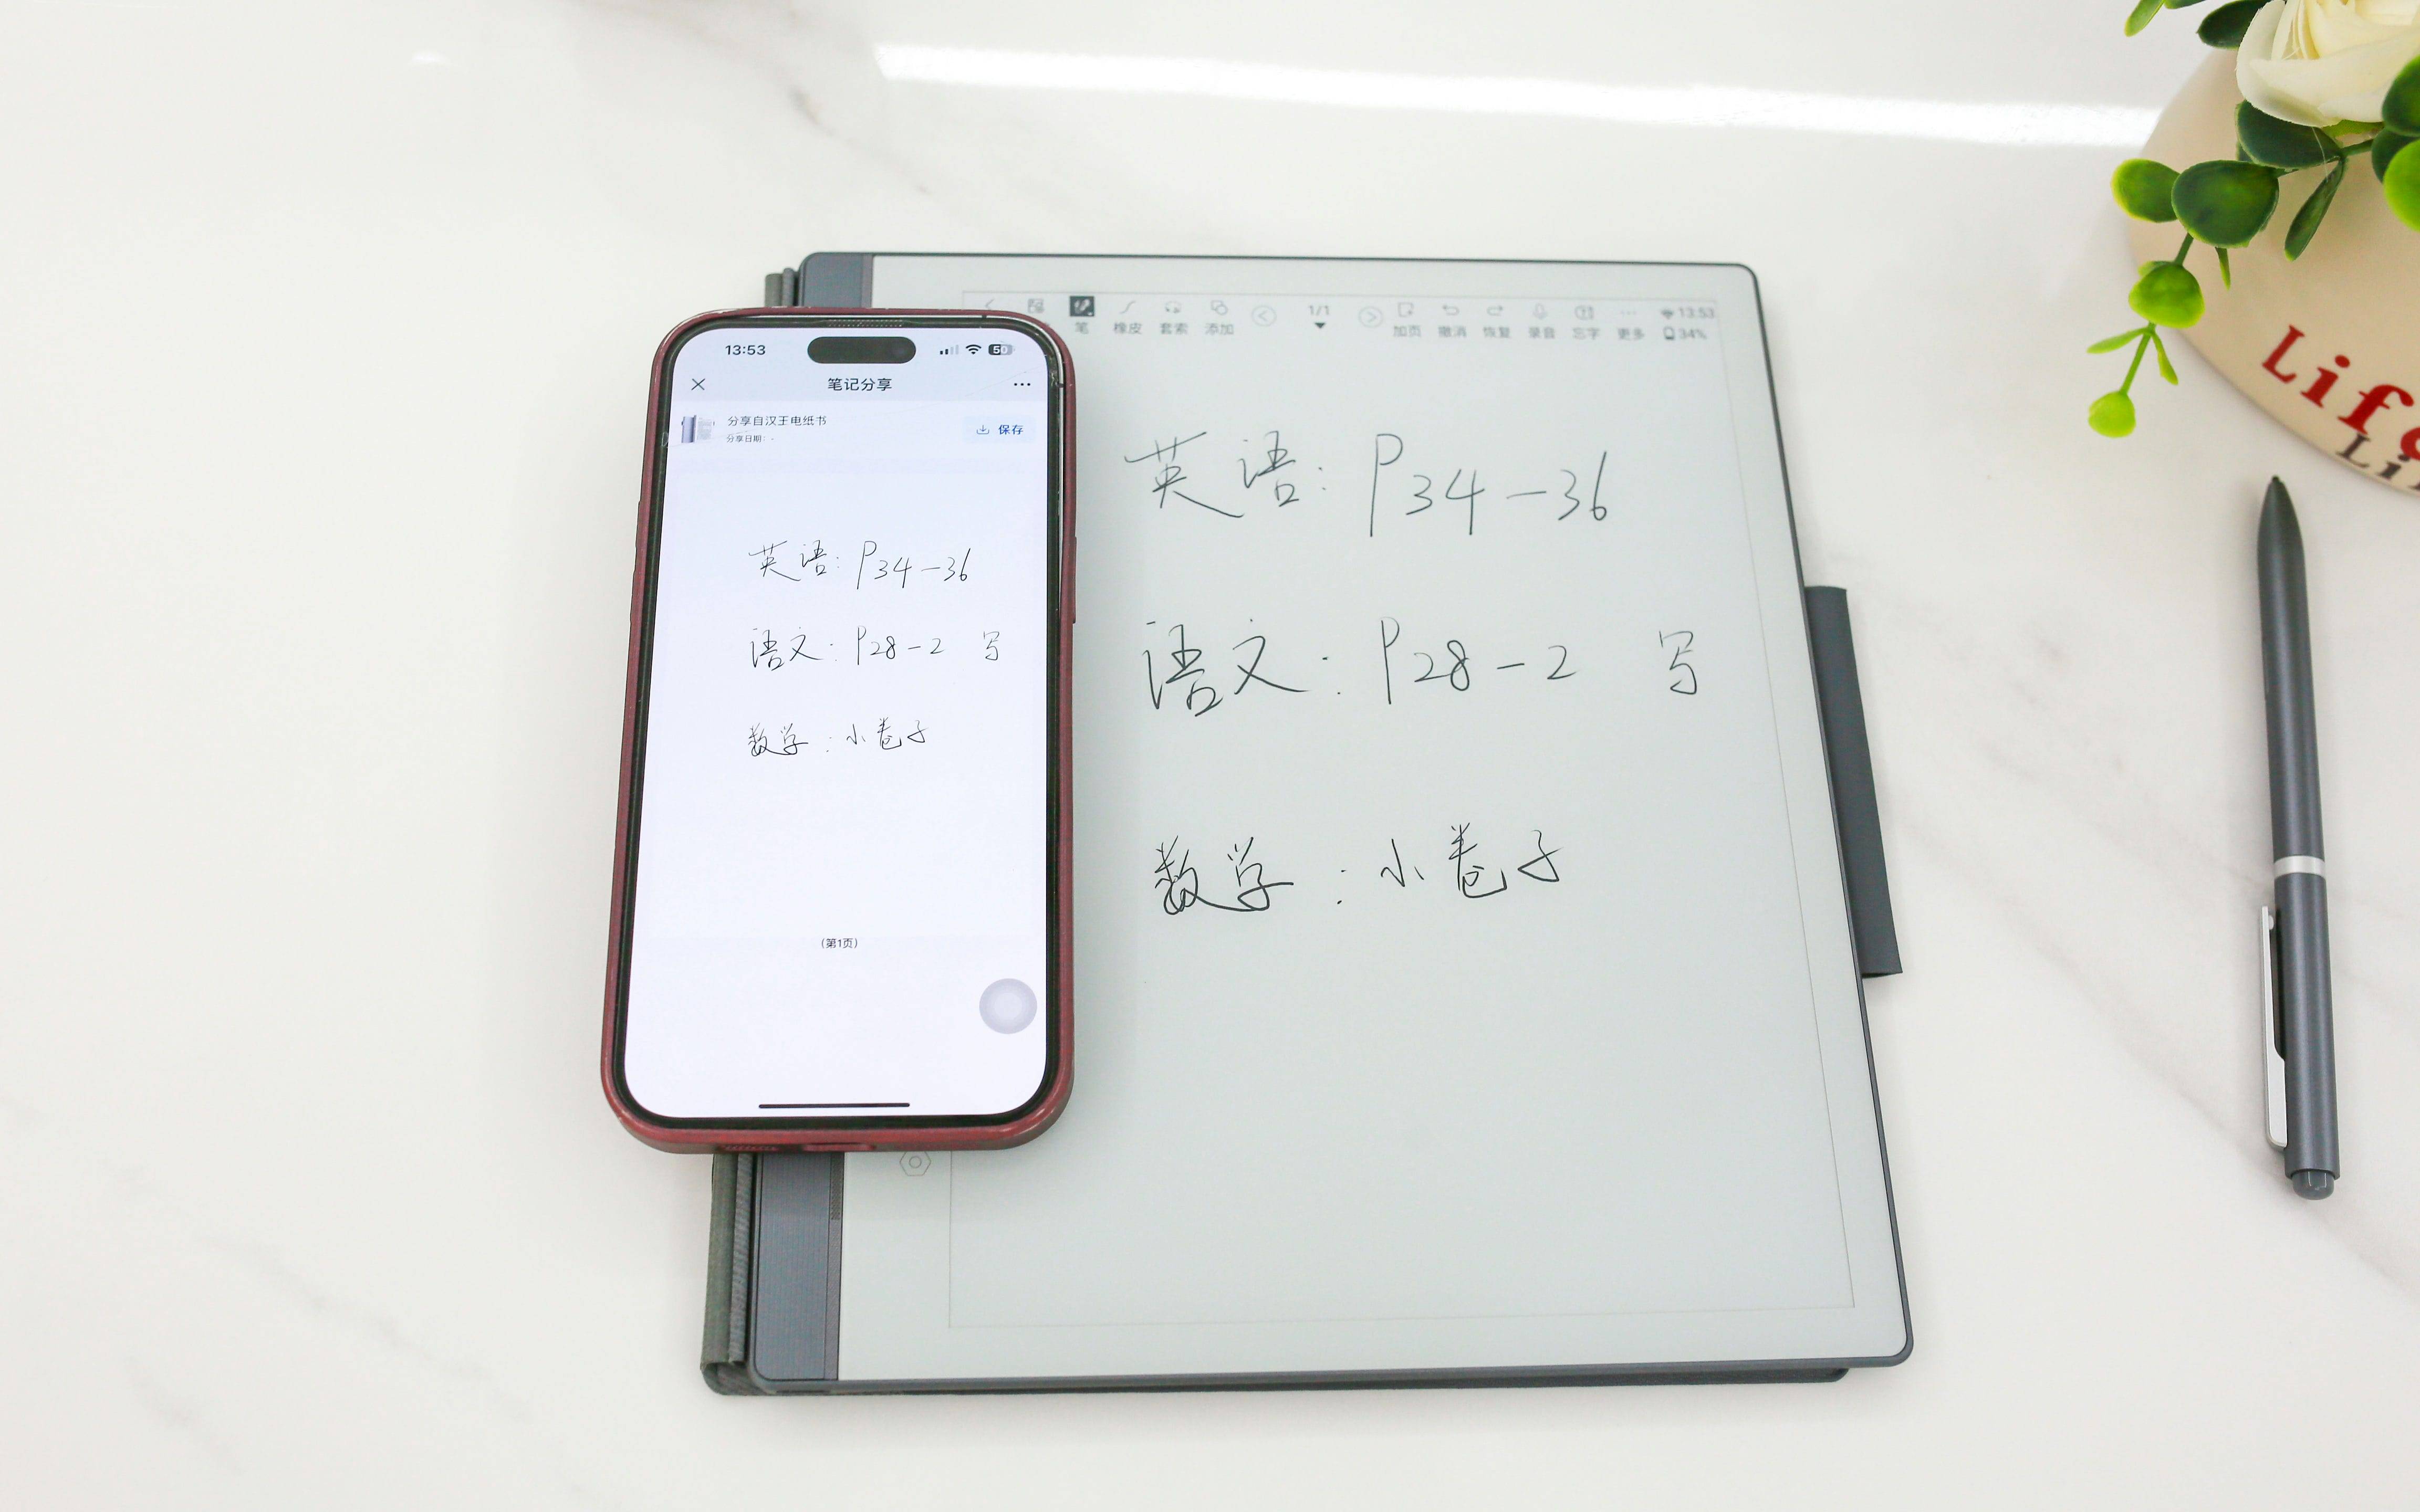 13:53
50
笔记分享
分享自汉王电纸书
分享日期: -
保存
英语: P34-36
语文: P28-2 写
数学: 小卷子
(第1页)
笔 橡皮 套索 添加 1/1 加页 撤消 恢复 录音 忘字 更多 13:53
34%
英语: P34-36
语文: P28-2 写
数学: 小卷子
Life
Li